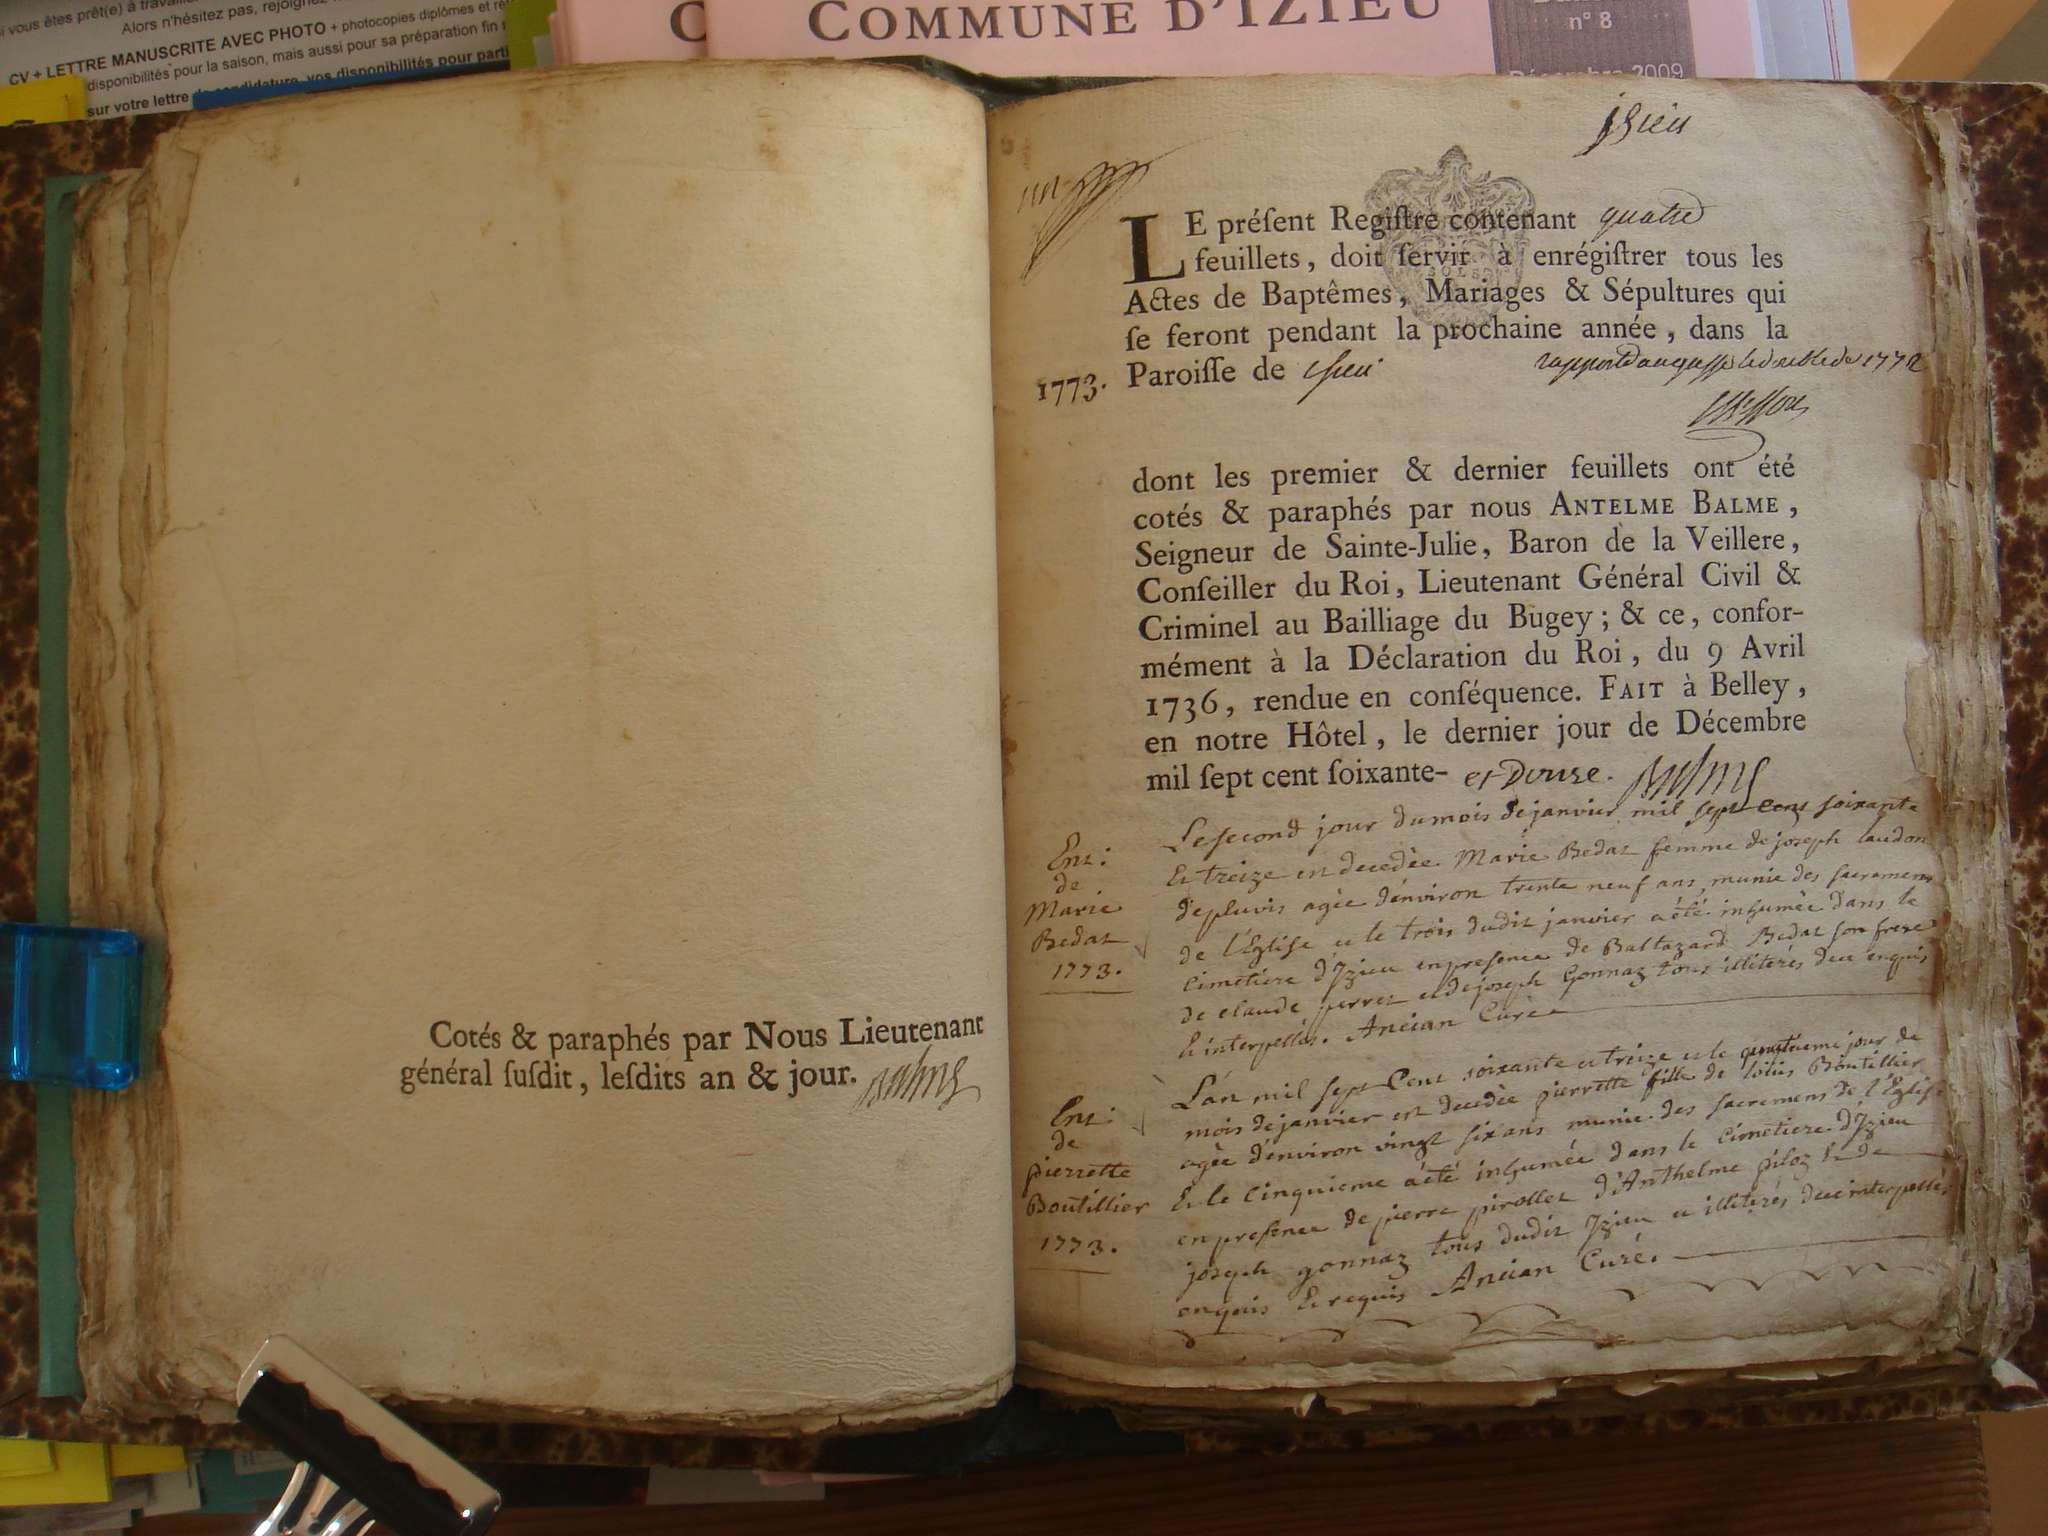 i vous êtes prêt(e) à travailler
Alors n'hésitez pas, rejoignez
CV + LETTRE MANUSCRITE AVEC PHOTO + photocopies diplômes et
disponibilités pour la saison, mais aussi pour sa préparation fin
sur votre lettre de candidature, vos disponibilités pour parti
C
COMMUNE D'IZIEU
n° 8
Décembre 2009
Cotés & paraphés par Nous Lieutenant
général suſdit, leſdits an & jour. Balme
jsieu
LE préſent Regiſtre contenant quatre
feuillets, doit ſervir à enrégiſtrer tous les
SOLS
Actes de Baptêmes, Mariages & Sépultures qui
ſe feront pendant la prochaine année, dans la
1773. Paroiſſe de
1772
dont les premier & dernier feuillets ont été
cotés & paraphés par nous ANTELME BALME,
Seigneur de Sainte-Julie, Baron de la Veillere,
Conſeiller du Roi, Lieutenant Général Civil &
Criminel au Bailliage du Bugey; & ce, confor-
mément à la Déclaration du Roi, du 9 Avril
1736, rendue en conſéquence. FAIT à Belley,
en notre Hôtel, le dernier jour de Décembre
mil ſept cent ſoixante- et Douze. Balme
Ent:
de
Marie
Bedat
1773.
Le second jour du mois de janvier mil sept cent soixante
et treize est decedée Marie Bedat femme de joseph laudon
de pluvis agée d'environ trente neuf ans, munie des sacremens
de l'Eglise et le trois dudit janvier a été inhumée dans le
cimetiere d'Izieu en presence de Baltazard Bedat son frere
de claude perret et de joseph Gonnaz tous illiterés de ce enquis
et interpellés. Ancian Curé
Ent:
de
pierrette
Boutillier
1773.
L'an mil sept Cent soixante et treize et le quatrieme jour de
mois de janvier est decedée pierrette fille de loüis Boutillier
agée d'environ vingt six ans munie des sacremens de l'Eglise
et le cinquieme a été inhumée dans le cimetiere d'Izieu
en presence de pierre pirollet d'Anthelme piloz et de
joseph gonnaz tous dudit Izieu et illiterés de ce interpellés
enquis et requis Ancian Curé.